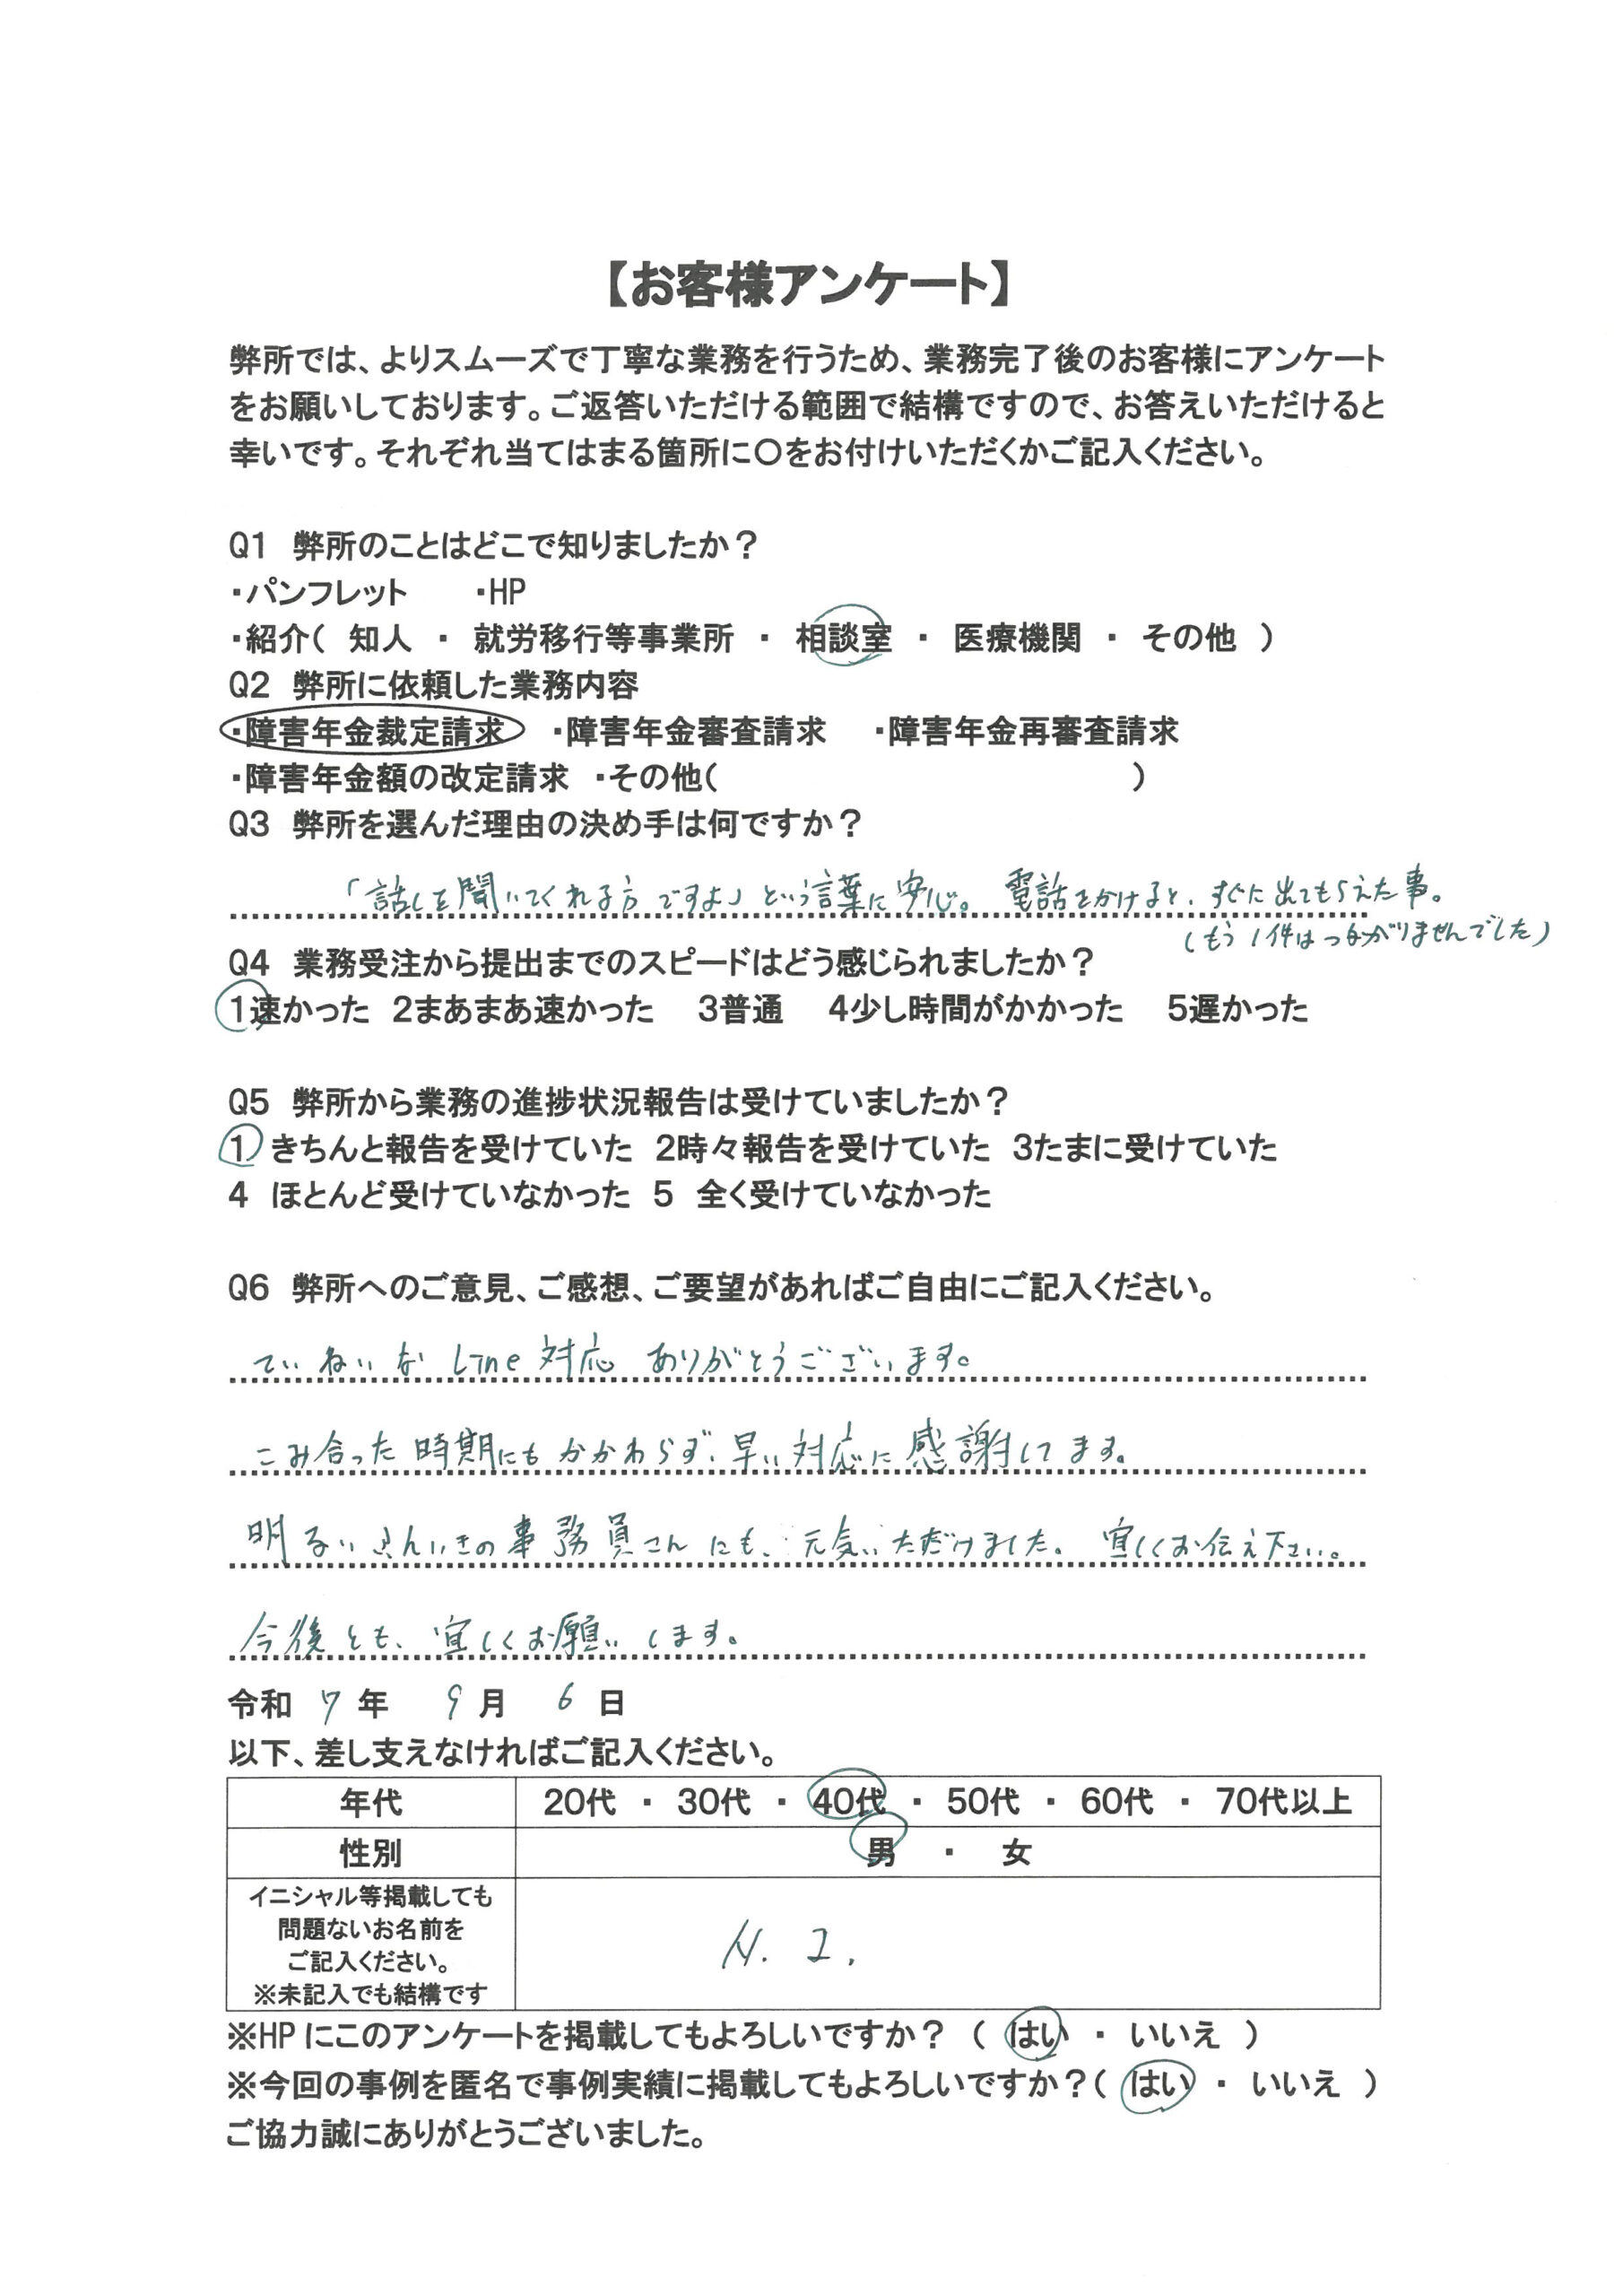 【お客様アンケート】
弊所では、よりスムーズで丁寧な業務を行うため、業務完了後のお客様にアンケート
をお願いしております。ご返答いただける範囲で結構ですので、お答えいただけると
幸いです。それぞれ当てはまる箇所に〇をお付けいただくかご記入ください。
Q1 弊所のことはどこで知りましたか？
・パンフレット ・HP
・紹介（ 知人 ・ 就労移行等事業所 ・ 相談室 ・ 医療機関 ・ その他 ）
Q2 弊所に依頼した業務内容
・障害年金裁定請求 ・障害年金審査請求 ・障害年金再審査請求
・障害年金額の改定請求 ・その他（ ）
Q3 弊所を選んだ理由の決め手は何ですか？
「話しを聞いてくれる方ですよ」という言葉に安心。 電話をかけると、すぐに出てもらえた事。
（もう1件はつながりませんでした）
Q4 業務受注から提出までのスピードはどう感じられましたか？
1速かった 2まあまあ速かった 3普通 4少し時間がかかった 5遅かった
Q5 弊所から業務の進捗状況報告は受けていましたか？
1 きちんと報告を受けていた 2時々報告を受けていた 3たまに受けていた
4 ほとんど受けていなかった 5 全く受けていなかった
Q6 弊所へのご意見、ご感想、ご要望があればご自由にご記入ください。
ていねいな Line 対応 ありがとうございます。
こみ合った時期にもかかわらず、早い対応に感謝してます。
明るいふんいきの事務員さんにも、元気いただけました。 宜しくお伝え下さい。
今後とも、宜しくお願いします。
令和 7 年 9 月 6 日
以下、差し支えなければご記入ください。
年代 20代 ・ 30代 ・ 40代 ・ 50代 ・ 60代 ・ 70代以上
性別 男 ・ 女
イニシャル等掲載しても
問題ないお名前を
ご記入ください。
※未記入でも結構です
N. I.
※HPにこのアンケートを掲載してもよろしいですか？（ はい ・ いいえ ）
※今回の事例を匿名で事例実績に掲載してもよろしいですか？（ はい ・ いいえ ）
ご協力誠にありがとうございました。